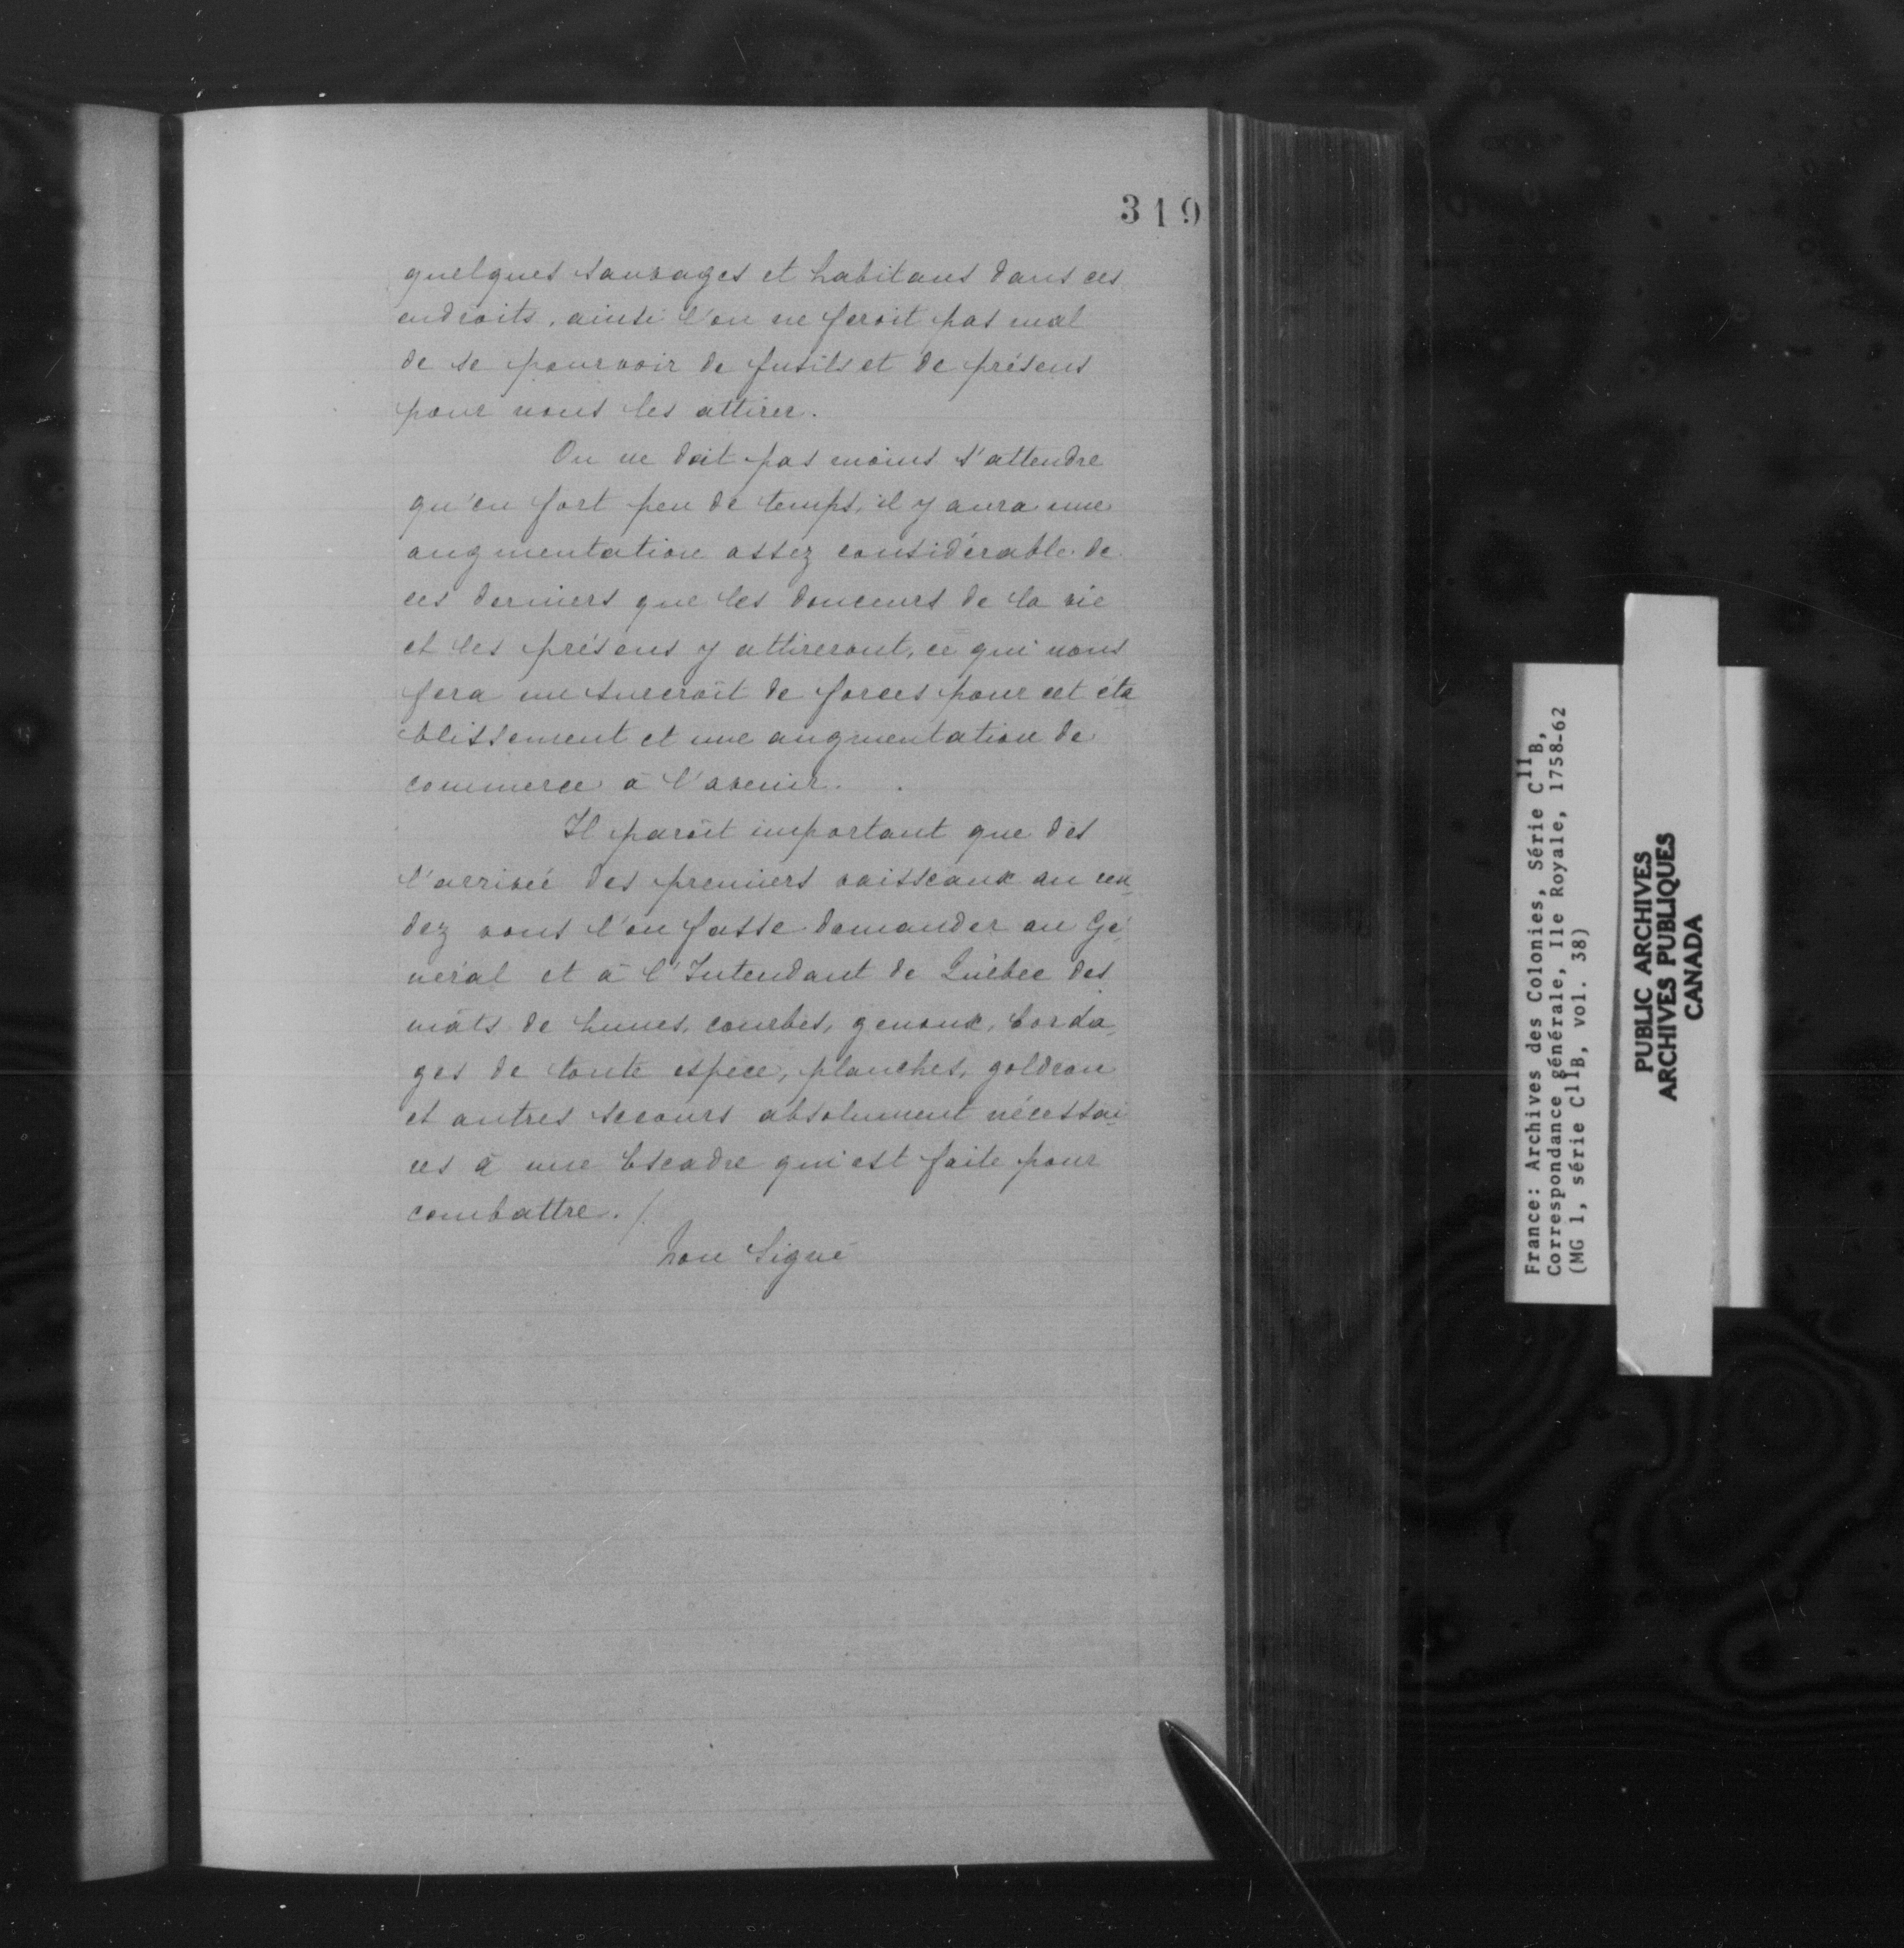 319
quelques sauvages et habitans dans ces
endroits, ainsi l'on ne feroit pas mal
de se pourvoir de fusils et de présens
pour nous les attirer.
On ne doit pas moins s'attendre
qu'en fort peu de temps, il y aura une
augmentation assez considérable de
ces derniers que les douceurs de la vie
et les présens y attireront, ce qui nous
fera un surcroît de forces pour cet éta
blissement et une augmentation de
commerce à l'avenir.
Il paroît important que dès
l'arrivée des premiers vaisseaux au ren-
dez vous l'on fasse demander au Gé-
néral et à l'Intendant de Québec des
mâts de hunes, courbes, genoux, borda-
ges de toute espèce, planches, goldron
et autres secours absolument nécessai-
res à une Escadre qui est faite pour
combattre. /.
Non Signé
France: Archives des Colonies, Série C11B,
Correspondance générale, Ile Royale, 1758-62
(MG 1, série C11B, vol. 38)
PUBLIC ARCHIVES
ARCHIVES PUBLIQUES
CANADA